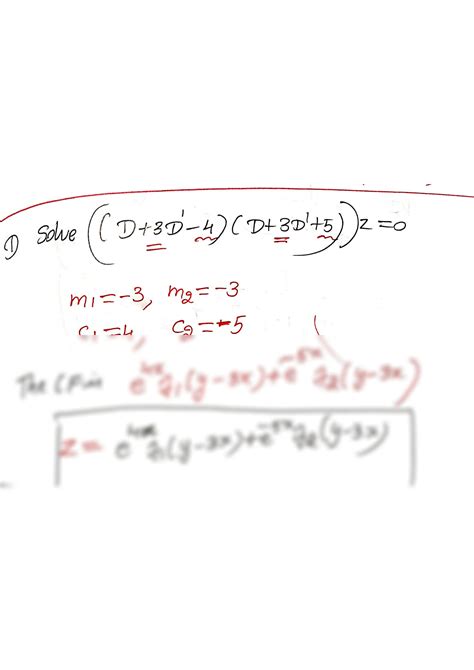 1) Solve ((D+3D'-4)(D+3D'+5))z=0
m1=-3, m2=-3
c1=4 c2=-5
The CF is e^4x f1(y-3x)+e^-5x f2(y-3x)
z= e^4x f1(y-3x)+e^-5x f2(y-3x)